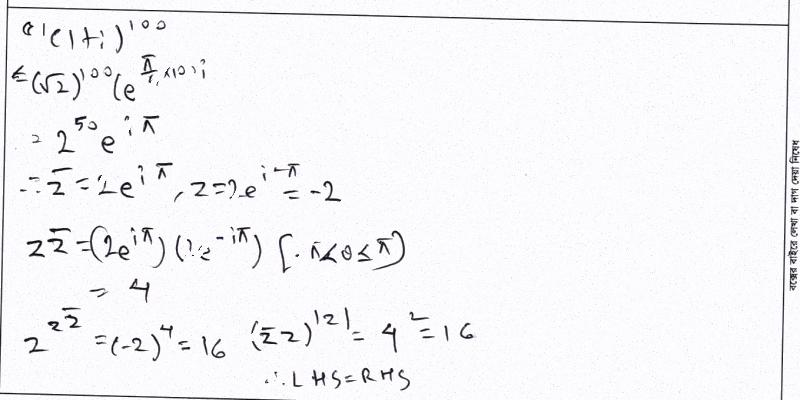 (1+i)^100
=(√2)^100 (e^(π/4 ×100 i)
= 2^50 e^(iπ)
∴ z̄ = 2e^(iπ), z = 2e^(i-π) = -2
z z̄ = (2e^(iπ)) (2e^(-iπ)) [-π<θ≤π)
= 4
z^(z z̄) = (-2)^4 = 16 (z̄z)^|z| = 4^2 = 16
∴ LHS=RHS
বক্সের বাইরে লেখা বা দাগ দেয়া নিষেধ